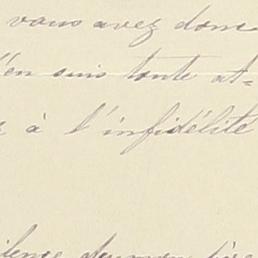 vous avez donc
j'en suis toute at=
à l'infidélité